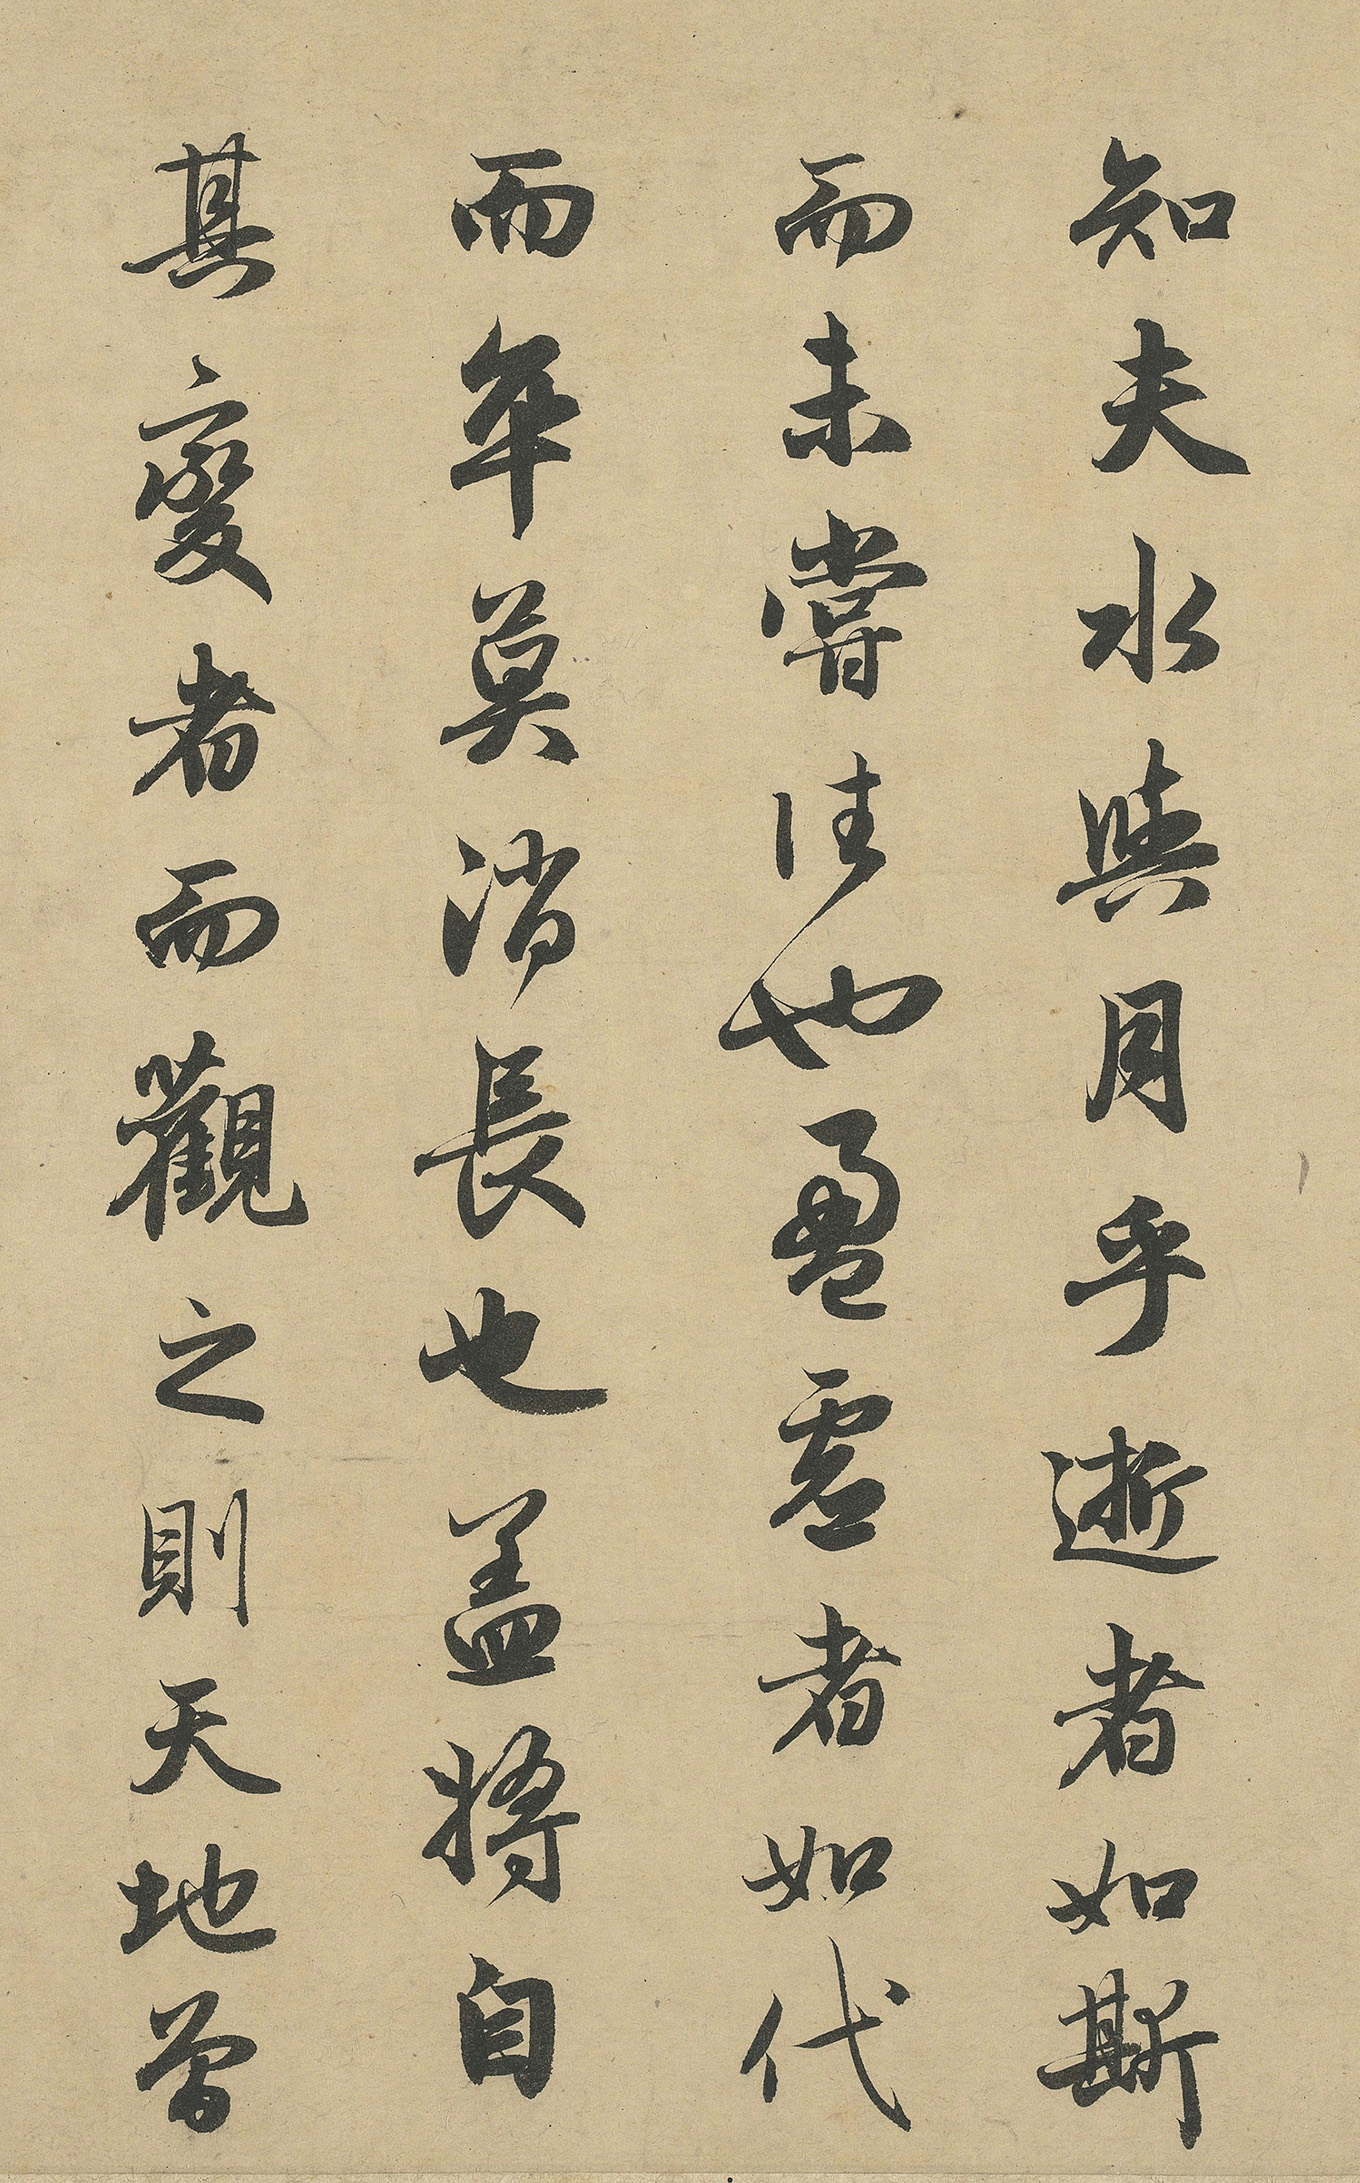 知夫水與月乎逝者如斯
而未嘗往也盈虛者如代
而卒莫消長也盖將自
其變者而觀之則天地曾